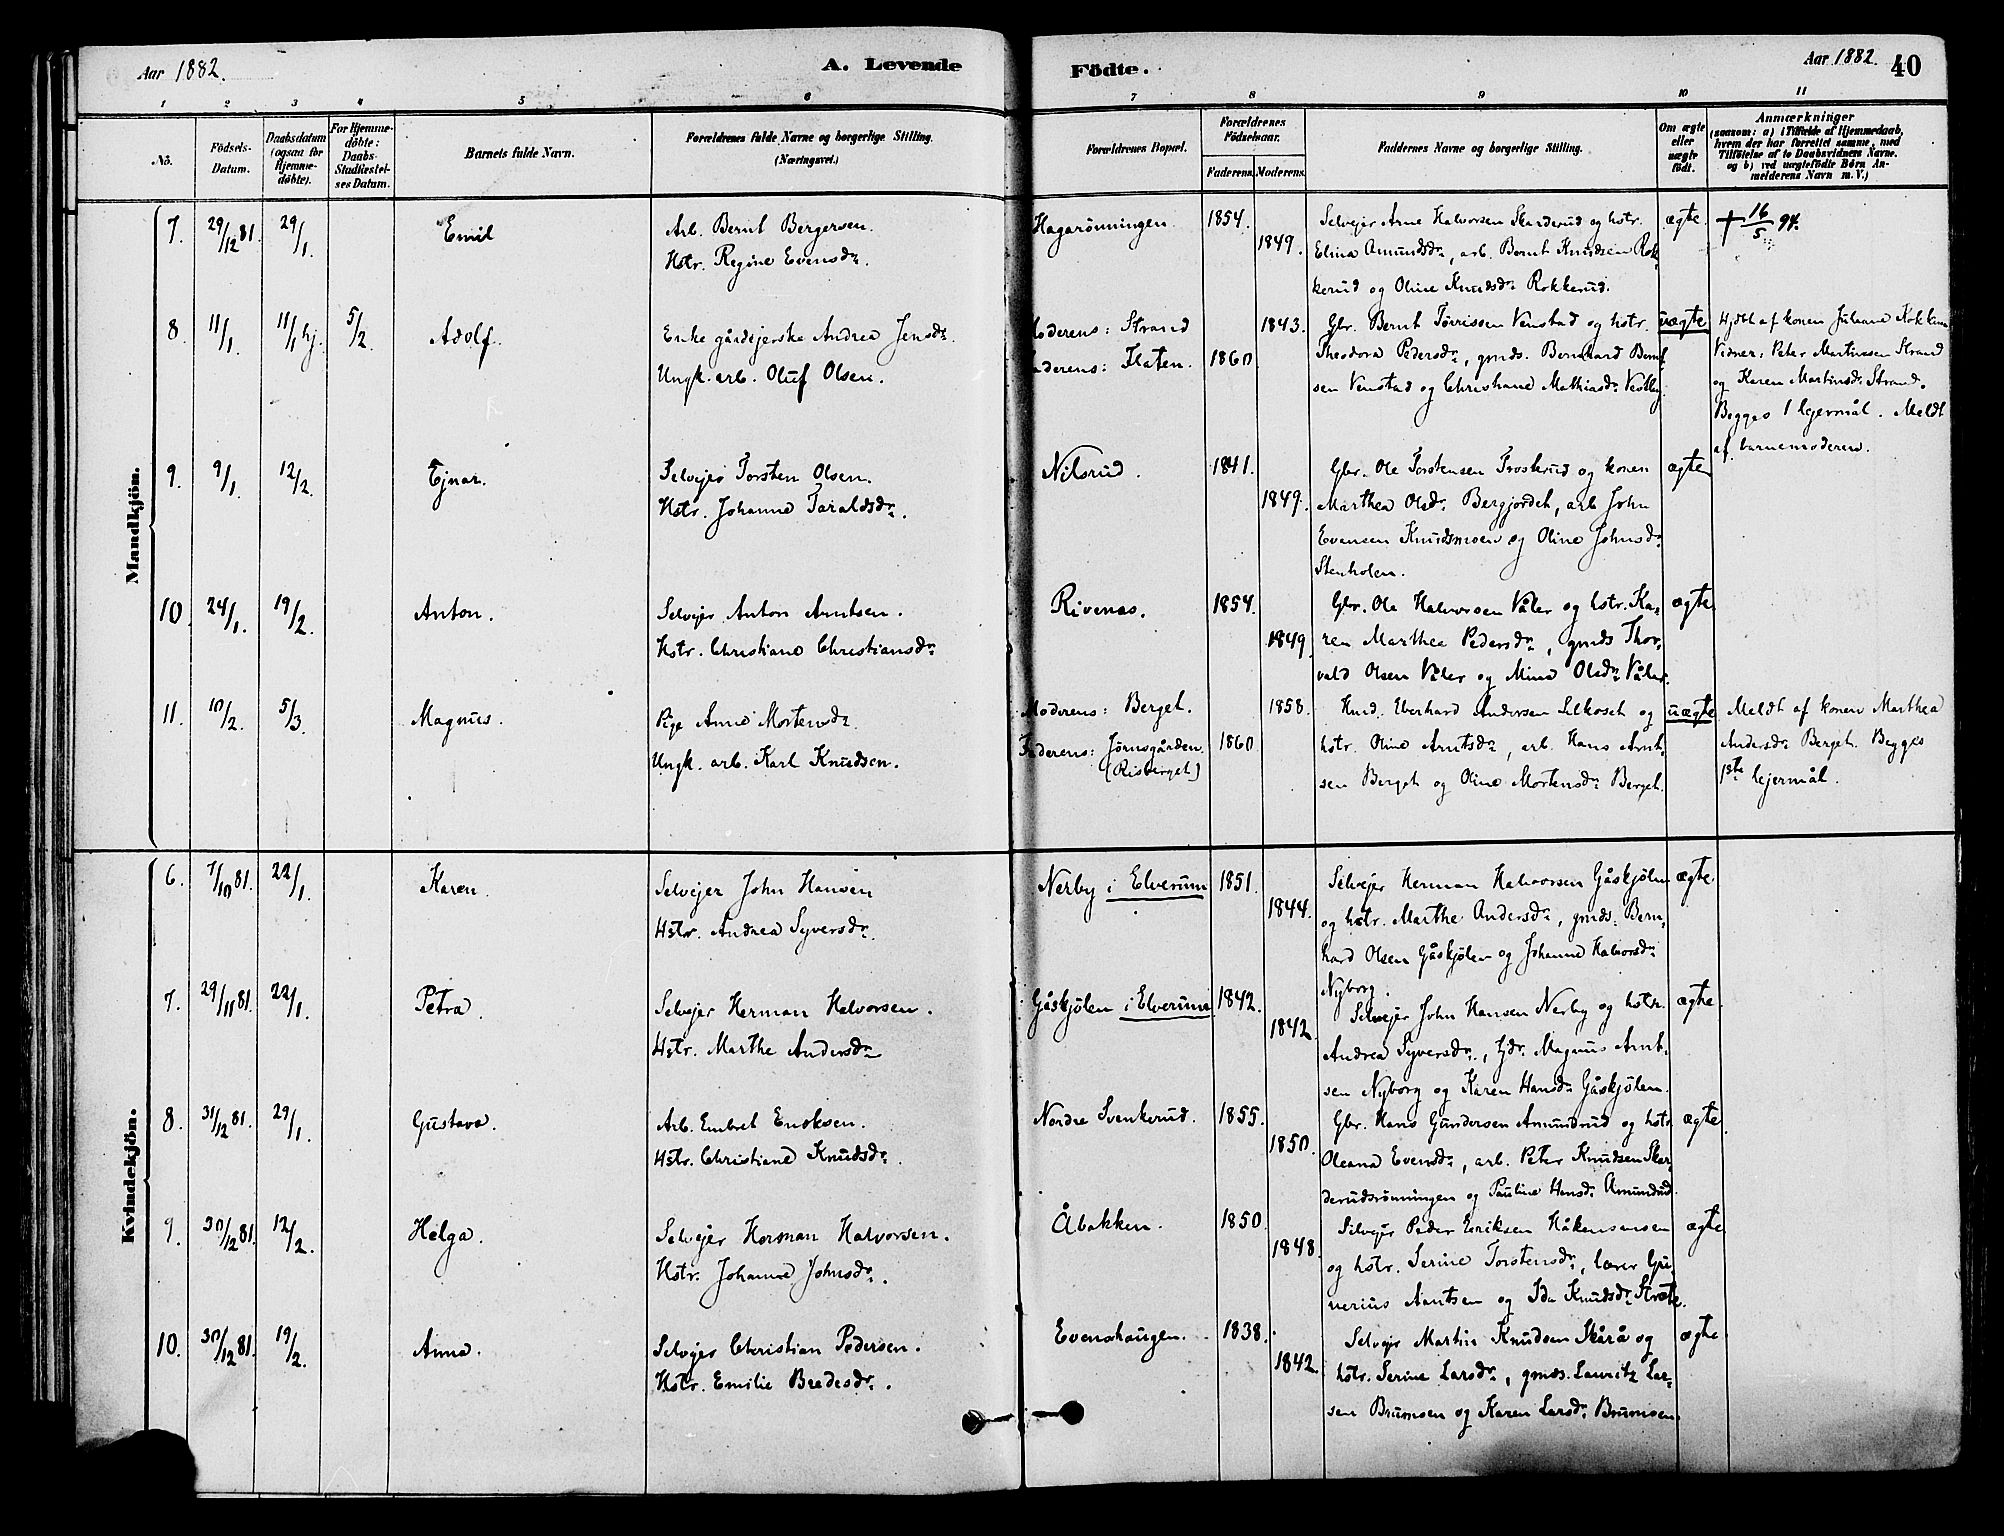 Aar 1882.
A. Levende
Födte.
Aar 1882.
40
1 2 3 4 5 6 7 8 9 10 11
Nô.
Födsels-Datum.
Daabsdatum (ogsaa for Hjemme-döbte).
For Hjemme-döbte: Daabs-Stadfæstel-ses Datum.
Barnets fulde Navn.
Forældrenes fulde Navne og borgerlige Stilling. (Næringsvei.)
Forældrenes Bopæl.
Forældrenes Födselsaar.
Faderens. Moderens.
Faddernes Navne og borgerlige Stilling.
Om ægte eller uægte födt.
Anmærkninger
(saasom: a) i Tilfælde af Hjemmedaab,
hvem der har forrettet samme, med
Tilföielse af to Daabsvidners Navne.
og b) ved uægtefödte Börn An-
melderens Navn m. V.)
Mandkjön.
7. 29/12 81. 29/1. Emil
Arb. Bernt Bergersen.
Hstr. Regine Evensdr.
Hagarönningen. 1854. 1849.
Selvejer Arne Halvorsen Skarderud og hstr.
Elina Amundsdr, arb. Bernt Knudsen Rok-
kerud og Oline Knudsdr Rokkerud.
ægte. † 16/5 94.
8. 11/1. 11/1 hj. 5/2. Adolf.
Enke gårdejerske Andrea Jensdr.
Ungk. arb. Oluf Olsen.
Moderens: Strand 1843.
Faderens: Flaten. 1860
Gbr. Bernt Törrissen Venstad og hstr.
Theodora Pedersdr, gmds. Bernhard Bernt-
sen Venstad og Christiane Mathiasdr Vestby.
uægte
Hjdbt af konen Juliane
Vidner: Peter Martinsen Strand
og Karen Martinsdr Strand.
Begges 1 lejermål. Meldt
af barnemoderen.
9. 9/1. 12/2. Ejnar.
Selvejer Torsten Olsen.
Hstr. Johanne Taraldsdr.
Nilsrud. 1841. 1849.
Gbr. Ole Torstensen Troskerud og konen
Marthea Olsdr Bergjordet, arb John
Evensen Knudsmoen og Oline Johnsdr
Stenholen.
ægte
10. 24/1. 19/2. Anton.
Selvejer Anton Arntsen.
Hstr. Christiane Christiansdr
Rivenæs. 1854. 1849.
Gbr. Ole Halvorsen Våler og hstr. Ka-
ren Marthea Pedersdr, gmds Thor-
vald Olsen Våler og Mina Olsdr Våler.
ægte
11. 10/2. 5/3. Magnus.
Pige Anne Mortensdr
Ungk. arb. Karl Knudsen.
Moderens: Berget. 1858.
Faderens: Jörnsgården. (Risberget) 1860.
Husd. Eberhard Andersen Silkoset og
hstr. Oline Arntsdr, arb. Hans Arnt-
sen Berget og Oline Mortensdr Berget.
uægte
Meldt af konen Marthea
Andersdr Berget. Begges
1ste lejermål.
Kvindekjön.
6. 7/10 81. 22/1. Karen.
Selvejer John Hansen
Hstr. Andrea Syversdr.
Nerby i Elverum 1851. 1844.
Selvejer Herman Halvorsen Gåskjölen
og hstr. Marthe Andersdr, gmds. Bern-
hard Olsen Gåskjölen og Johanne Halvorsdr
Nyborg.
ægte.
7. 29/11 81. 22/1. Petra.
Selvejer Herman Halvorsen.
Hstr. Marthe Andersdr
Gåskjölen i Elverum 1842. 1842.
Selvejer John Hansen Nerby og hstr.
Andrea Syversdr, Magnus Arnt-
sen Nyborg og Karen Hansdr Gåskjölen.
ægte
8. 31/12 81. 29/1. Gustava.
Arb. Embret Enoksen.
Hstr. Christiane Knudsdr.
Nordre Svenkerud. 1855. 1850.
Gbr. Hans Gundersen Amundrud og hstr.
Oleana Evensdr, arb. Peter Knudsen Skar-
derudsrönningen og Pauline Hansdr Amundrud.
ægte
9. 30/12 81. 12/2. Helga.
Selvejer Herman Halvorsen.
Hstr. Johanne Johnsdr.
Åbakken. 1850. 1848.
Selvejer Peder Eriksen Håkensenseen
og hstr. Serine Torstensdr, lærer Gri-
nerius Arntsen og Ida Knudsdr Stræte.
ægte
10. 30/12 81. 19/2. Anna.
Selvejer Christian Pedersen.
Hstr. Emilie Bredesdr.
Evenshaugen. 1838. 1842.
Selvejer Martin Knudsen Skårå og
hstr. Serine Larsdr, gmds. Lauritz Lar-
sen Brumsen og Karen Larsdr Brumsen.
ægte